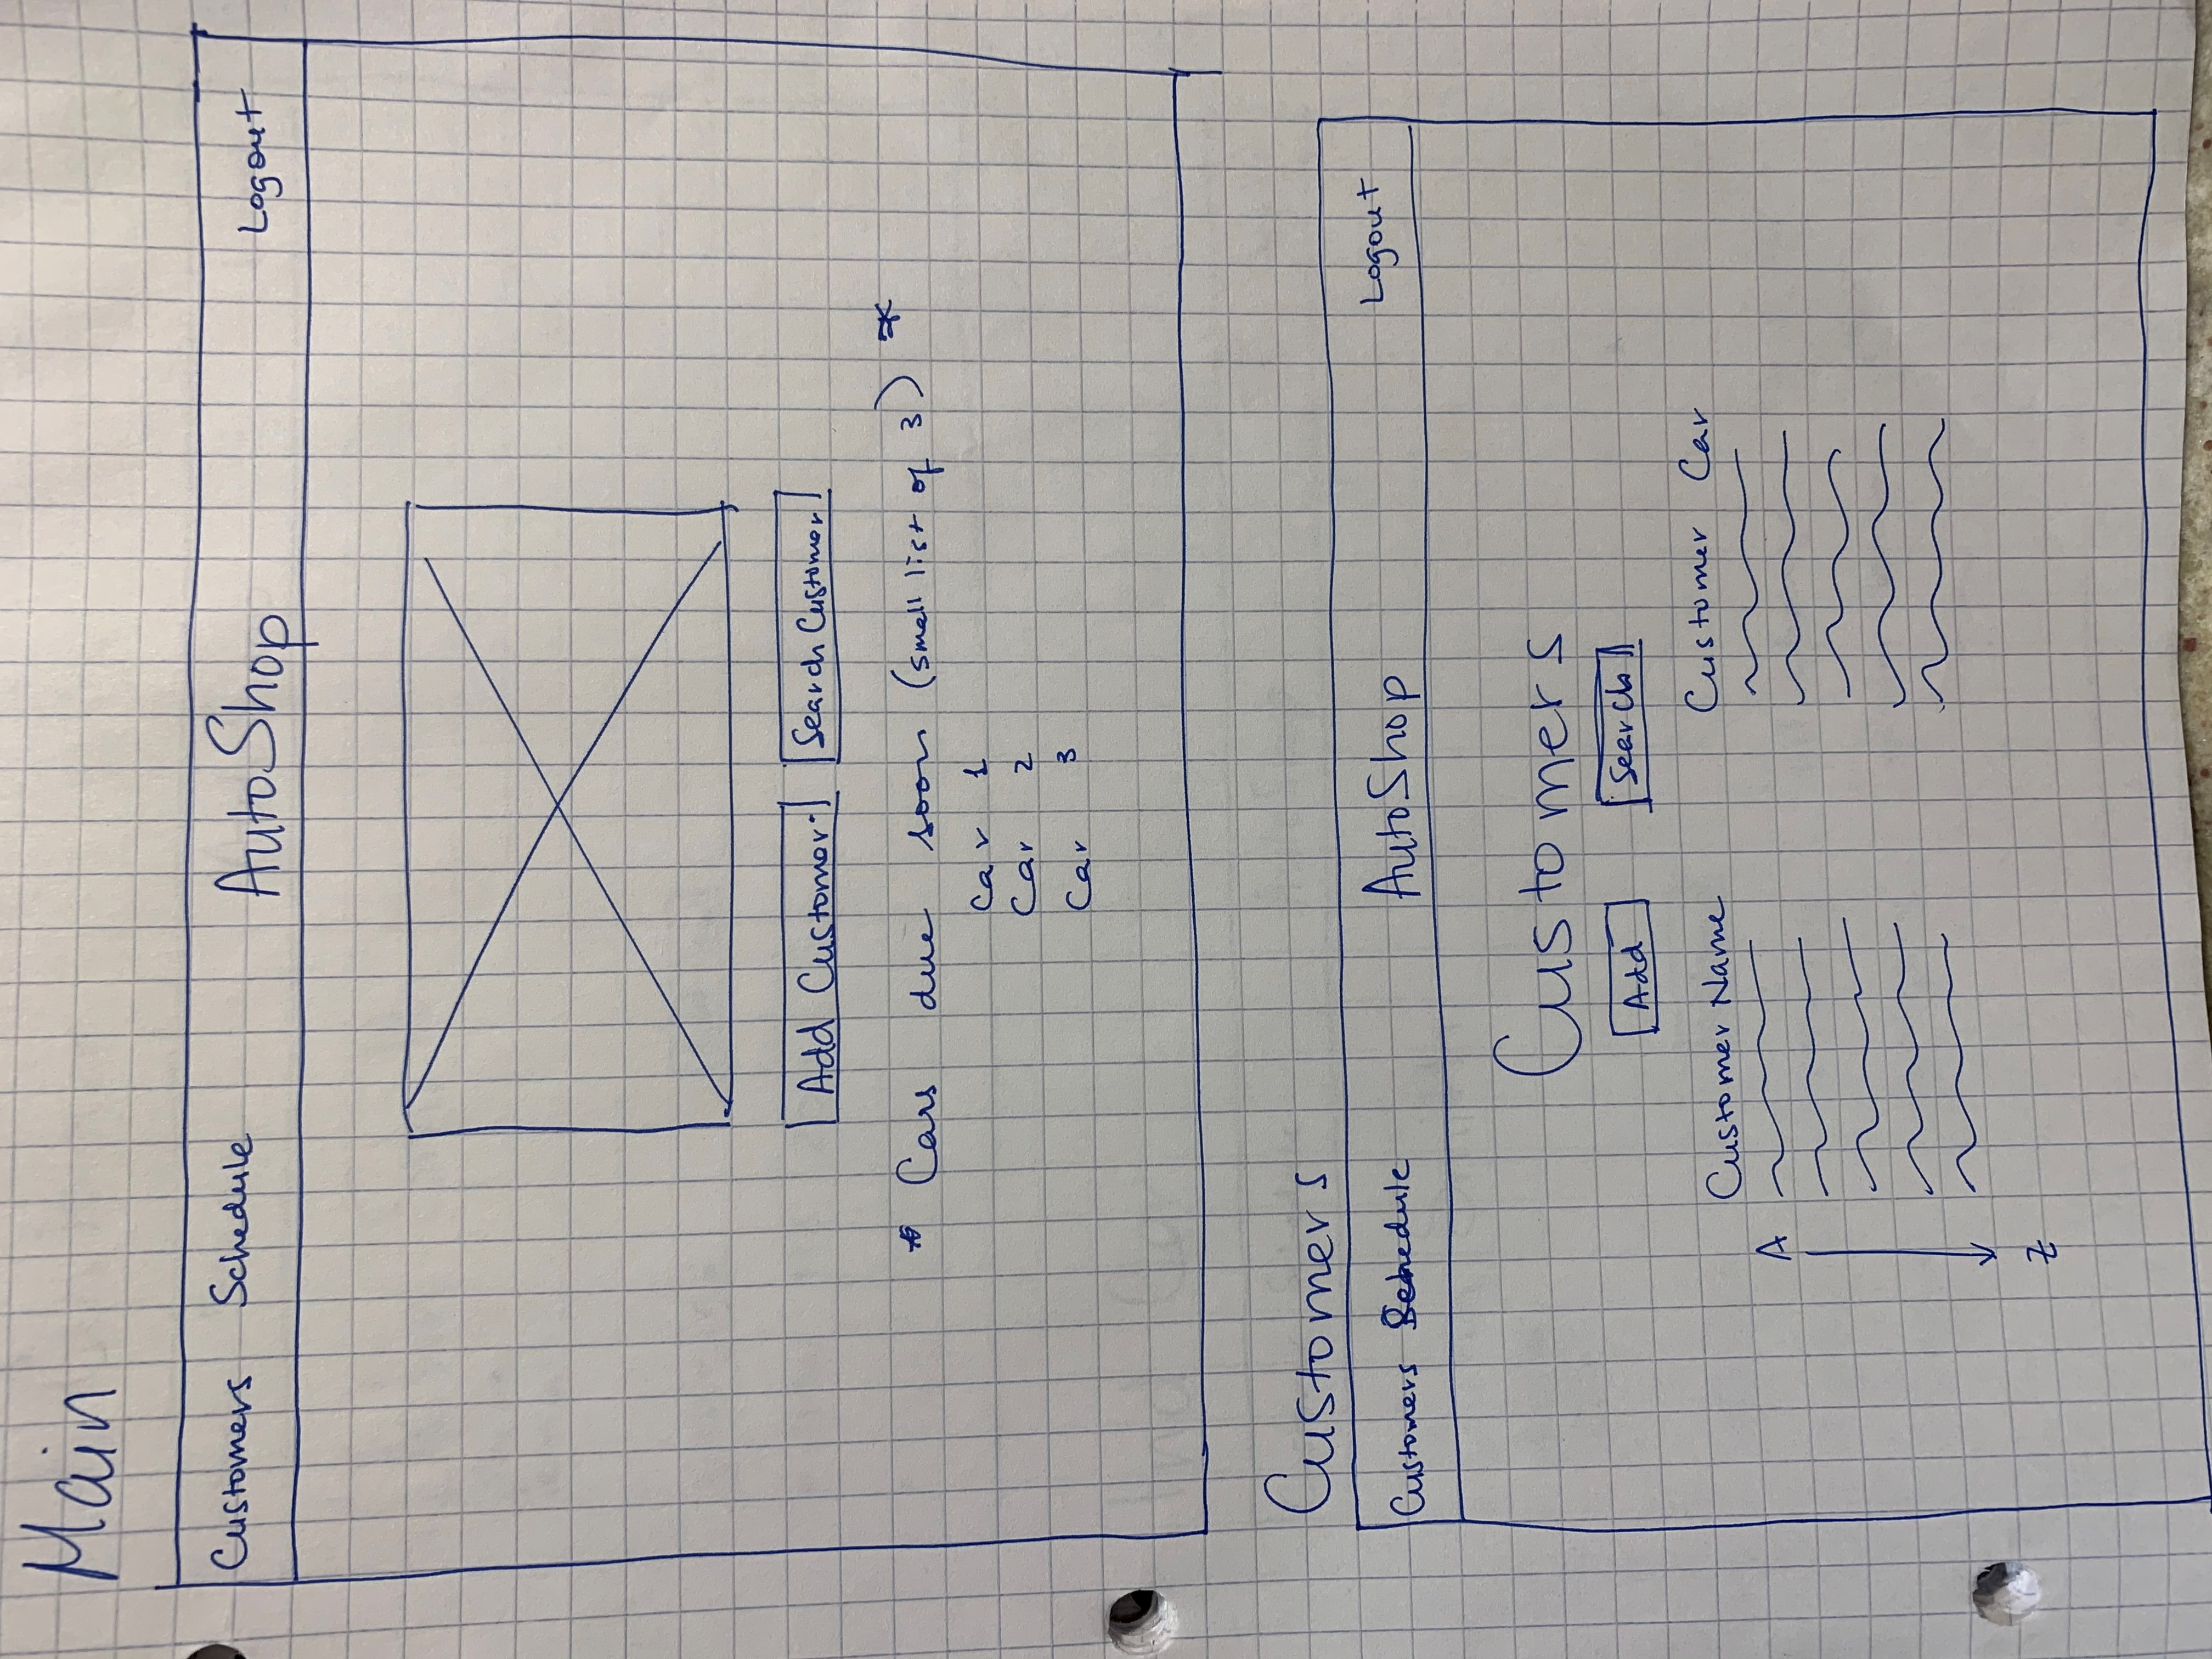 Main
Customers Schedule AutoShop Logout
Add Customer Search Customer
* Cars due soon (small list of 3) *
Car 1
Car 2
Car 3
Customers
Customers Schedule AutoShop Logout
Customers
Add Search
Customer Name Customer Car
A
Z